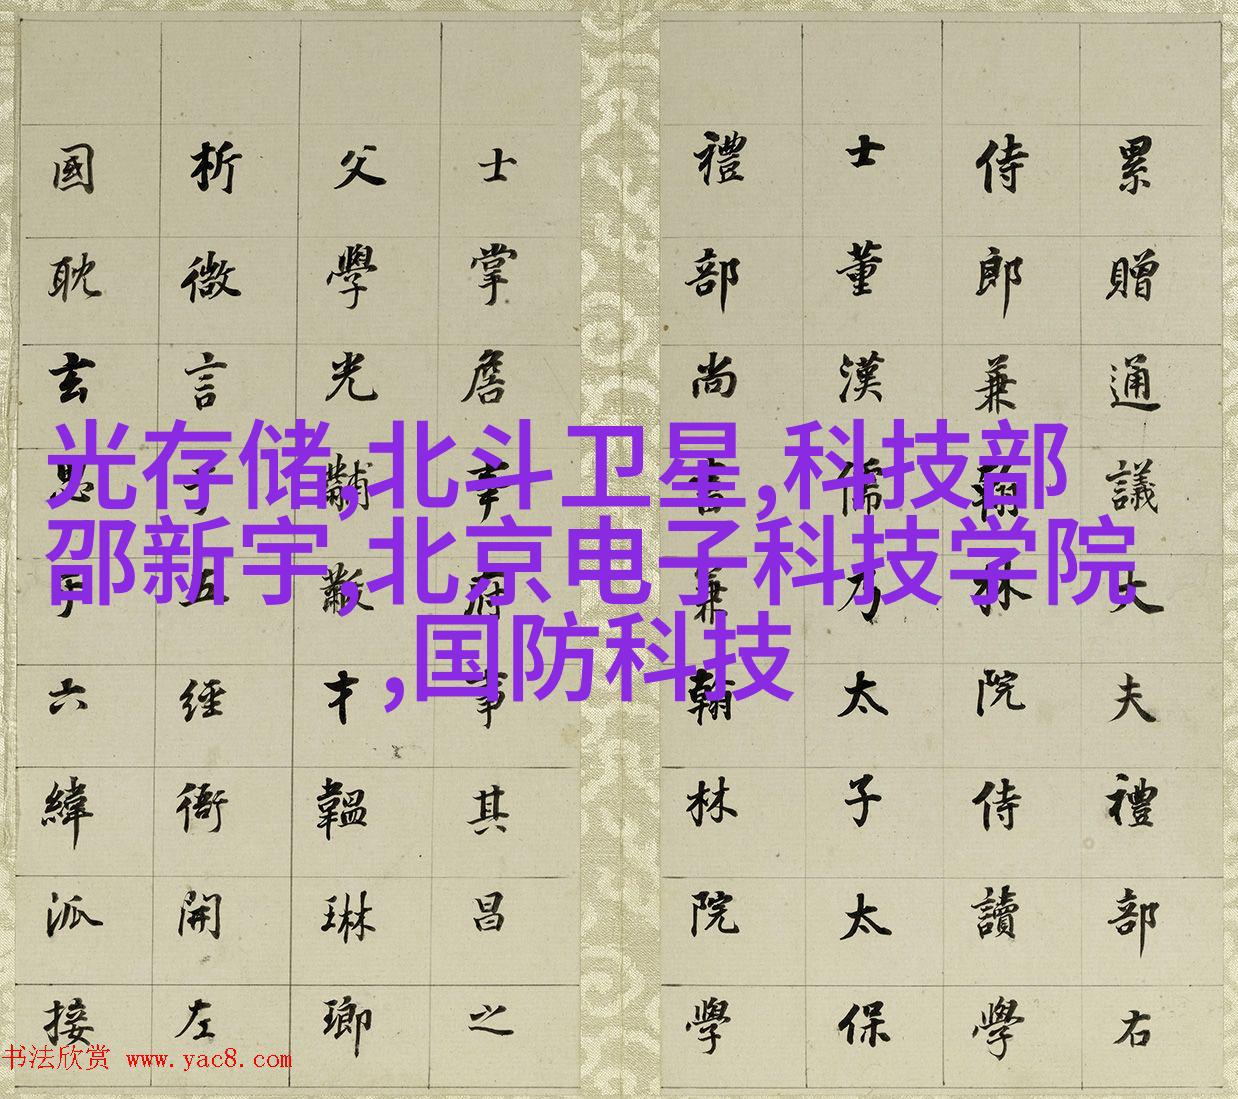 累贈通議大夫禮部右
侍郎兼翰林院侍讀學
士董漢儒乃太子太保
禮部尚書兼翰林院學
士掌詹事府事其昌之
父學光黼黻才韞琳瑯
析微言于五經開左
國耽玄思于六緯派接
光存储,北斗卫星,科技部
邵新宇,北京电子科技学院
,国防科技
书法欣赏 www.yac8.com